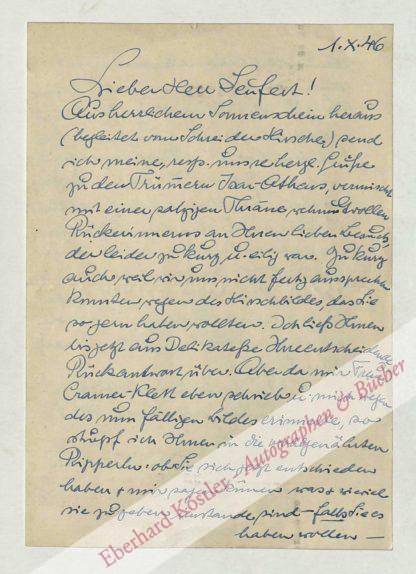 1.X.46
Lieber Herr Seufert!
Aus herrlichem Sonnenschein heraus
(begleitet vom Schrei der Hirsche) send
ich meine, resp. unsre herzl. Grüße
zu den Trümmern Isar-Athens, vermischt
mit einer salzigen Thräne wehmutvollen
Rückerinnerns an Ihren lieben Besuch,
der leider zu kurz u. eilig war. Zu kurz
auch, weil wir uns nicht fertig aussprechen
konnten wegen des Hirschbildes, das Sie
so gern haben wollten. Ich ließ Ihnen
bis jetzt aus Delikatesse Ihre entscheidende
Rückantwort über. Aber da mir Frau
Cramer-Klett eben schrieb u. mich wegen
des nun fälligen Bildes erinnerte, so
stupf ich Ihnen in die
Ripperln: ob Sie sich jetzt entschieden
haben + mir sagen können was + wieviel
Sie zu geben imstande sind – falls Sie es
haben wollen –
Eberhard Köstler - Autographen & Bücher